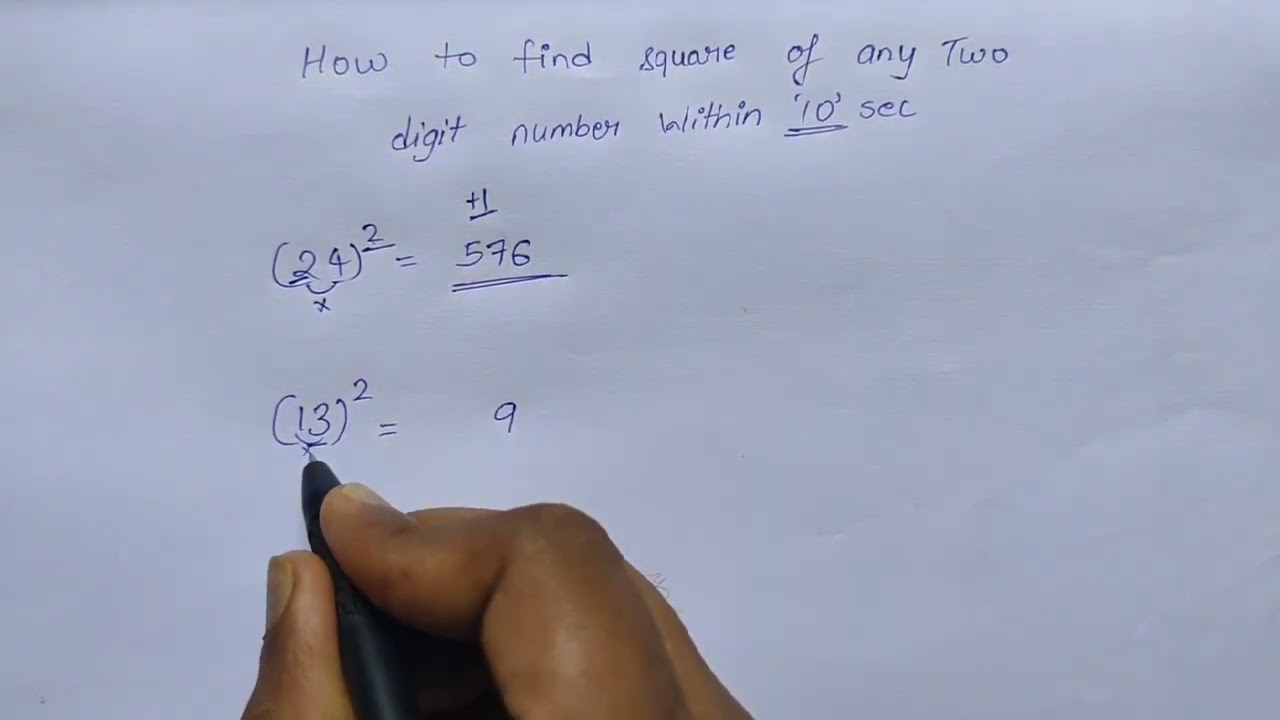 How to find square of any Two
digit number Within '10' sec
+1
(24)² = 576
x
(13)² = 9
x